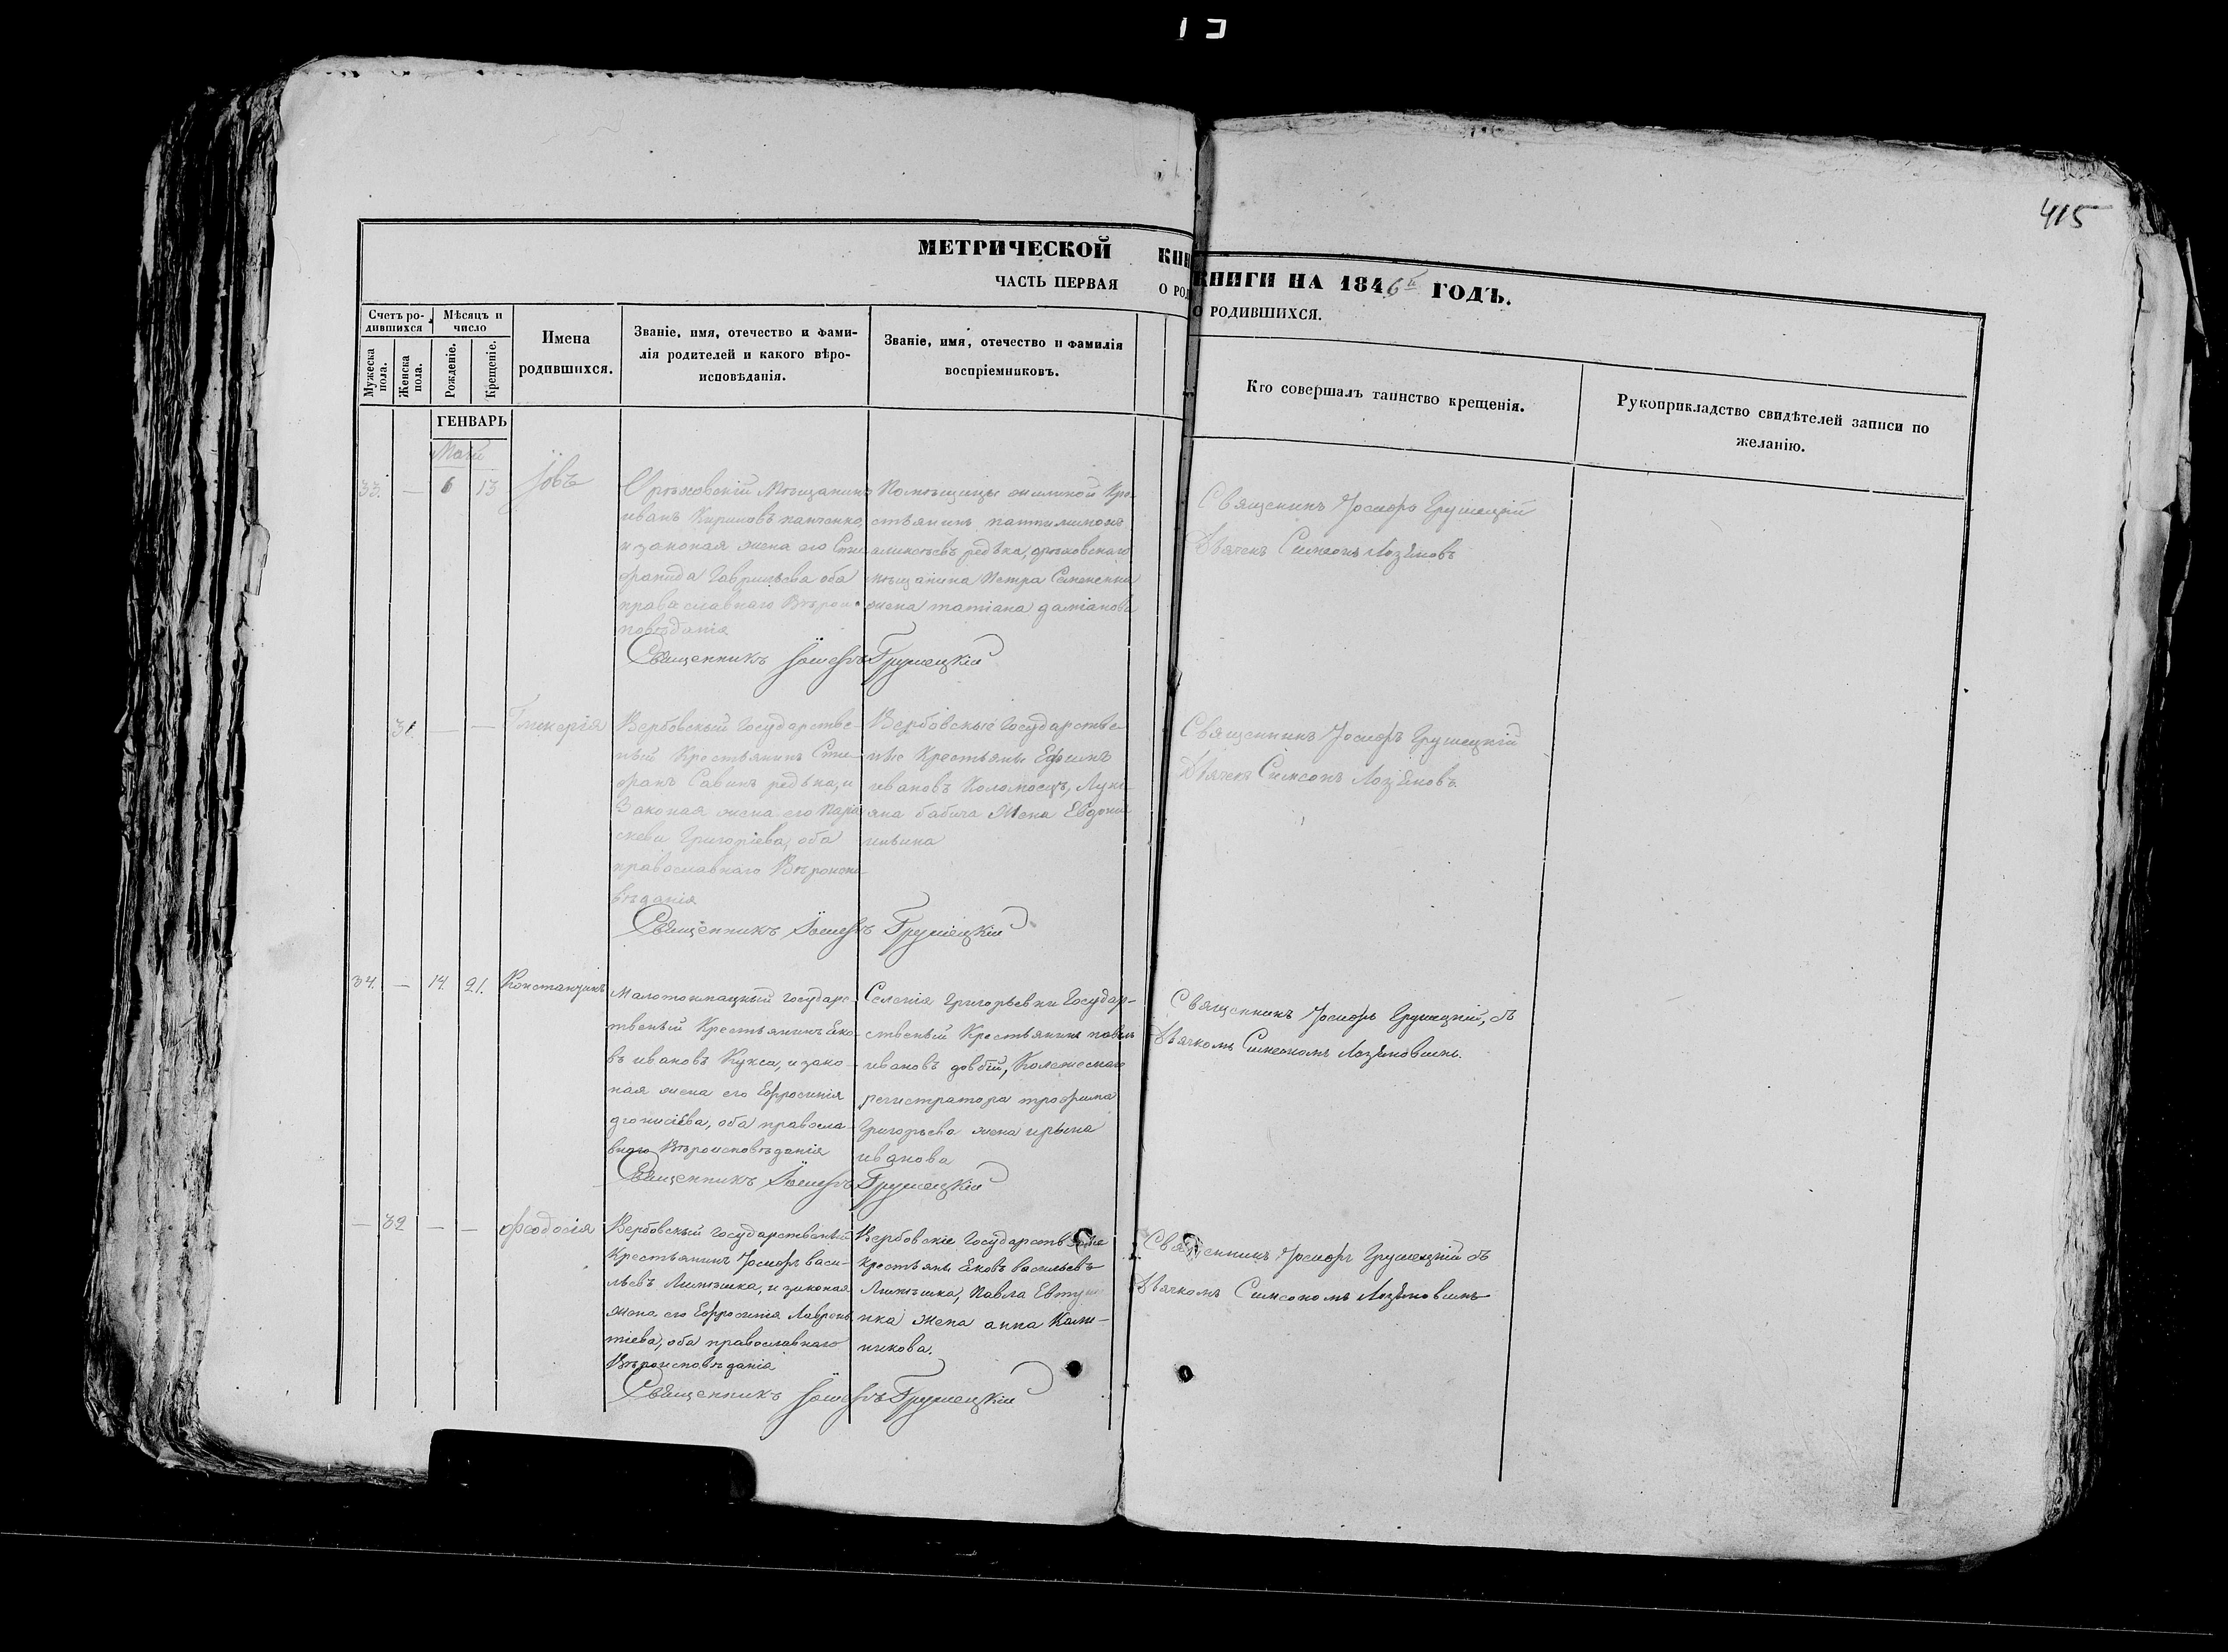 415
МЕТРИЧЕСКОЙ КНИГИ НА 1846й ГОДЪ.
ЧАСТЬ ПЕРВАЯ О РОДИВШИХСЯ.
Счетъ ро-
дившихся
Мѣсяцъ и
число
Мужеска
пола.
Женска
пола.
Рожденіе.
Крещеніе.
Имена
родившихся.
Званіе, имя, отечество и фами-
лія родителей и какого вѣро-
исповѣданія.
Званіе, имя, отечество и фамилія
воспріемниковъ.
Кто совершалъ таинство крещенія.
Рукоприкладство свидѣтелей записи по
желанію.
ГЕНВАРЬ
Май
33. — 6 13 Іовъ
Орѣховскій Мѣщанинъ
иванъ Кириловъ панченко
и законая жена его Сте
фанида Гаврильева оба
православнаго Вѣрои-
повѣданія
Помѣщицы Кре
стьянинъ
алексѣевъ редька, орѣховскаго
мѣщанина Петра Семененка
жена татіана даміанова
Священикъ Іосифъ Грушецкій
Дьячекъ Симеонъ Лозѣновъ
Священникъ Іосифъ Грушецкій
31 — —
Вербовскый Государстве-
ный Крестьянинъ Сте-
фанъ Савинъ редька, и
Законая жена его Пара
скева Григоріева, оба
православнаго Вѣроиспо-
вѣданія
Вербовскые Государстве
ные Крестьяне Ефимъ
ивановъ Коломоецъ, Луки-
яна бабича Жена Евдокия
ильина
Священникъ Іосифъ Грушецкій
Дьячекъ Симеонъ Лозѣновъ.
Священникъ Іосифъ Грушецкій
34. — 14. 21. Констанзинъ
Малотокмацкый государс-
твеный Крестьянинъ Яко-
въ ивановъ Кукса, и зако-
ная жена его Ефросинія
дионисіева, оба правосла-
внаго Вѣроисповѣданія
Селенія Григорьевки Государ-
ственый Крестьянинъ павелъ
ивановъ довбій, Колежскаго
регистратора трофима
Григорьева жена ирына
иванова
Священникъ Іосифъ Грушецкій, съ
Дьячкомъ Симеономъ Лозѣновымъ.
Священникъ Іосифъ Грушецкій
— 32 — — Феодосія
Вербовскый Государственый
Крестьянинъ Іосифъ васи-
льевъ Лимѣшка, и законая
жена его Ефросинія Лаврен
тіева, оба православнаго
Вѣроисповѣданія
Вербовскіе Государственые
крестьяне Яковъ васильевъ
Лимѣшка, Павла Евтуше
нка жена анна Кали-
никова.
Священникъ Іосифъ Грушецкій съ
Дьячкомъ Симеономъ Лозѣновымъ
Священникъ Іосифъ Грушецкій